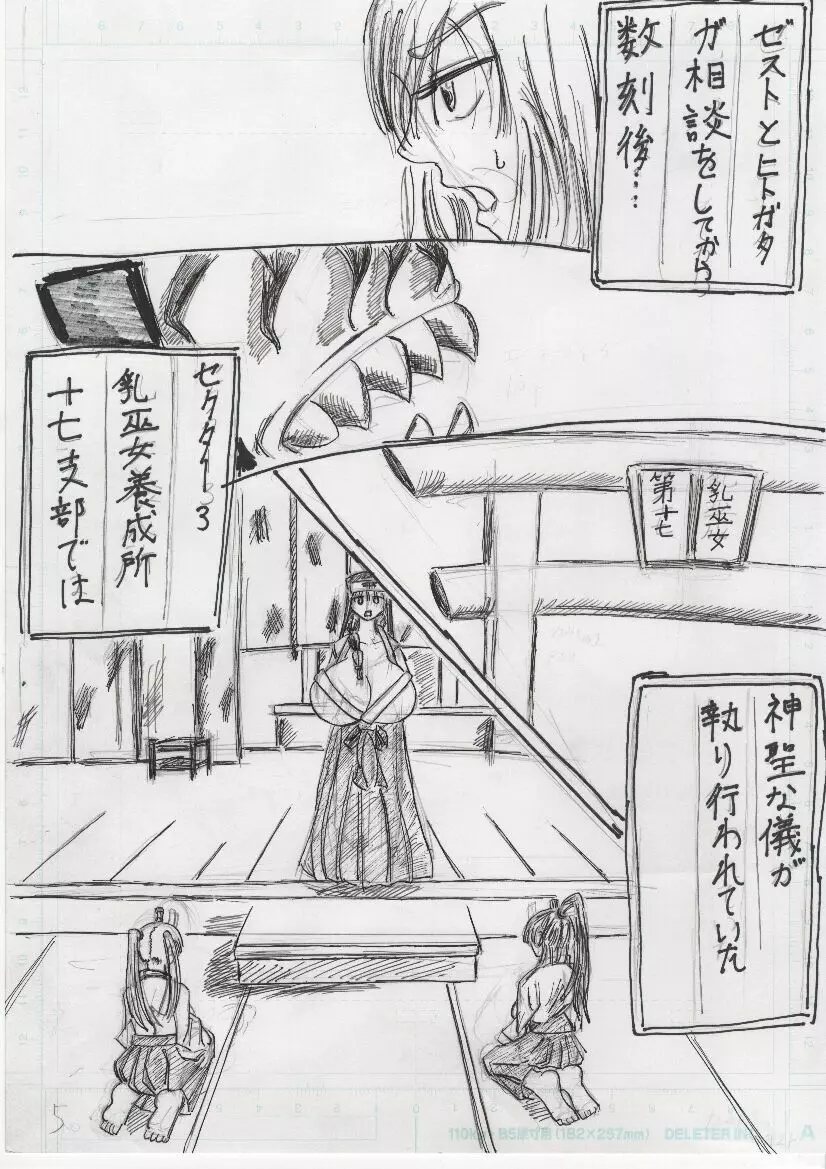 ゼストとヒトガタ
が相談をしてから
数刻後…
セクター3
乳巫女養成所
十七支部では
乳巫女
第十七
神聖な儀が
執り行われていた
5
110kg・B5原寸用(182×257mm) DELETER IN
A